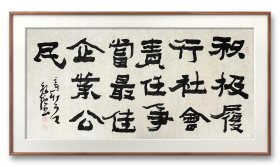 积极履
行社會
責任爭
當最佳
企業公
民